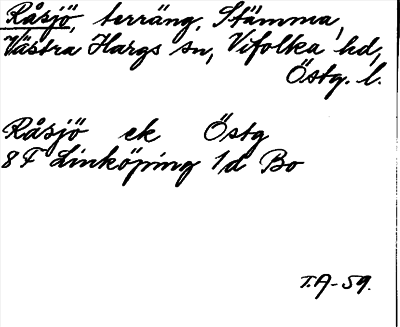 Råsjö, terräng, Stämma,
Västra Hargs sn, Vifolka hd,
Östg. l.
Råsjö ek Östg
8F Linköping 1d Bo
T.A-59.